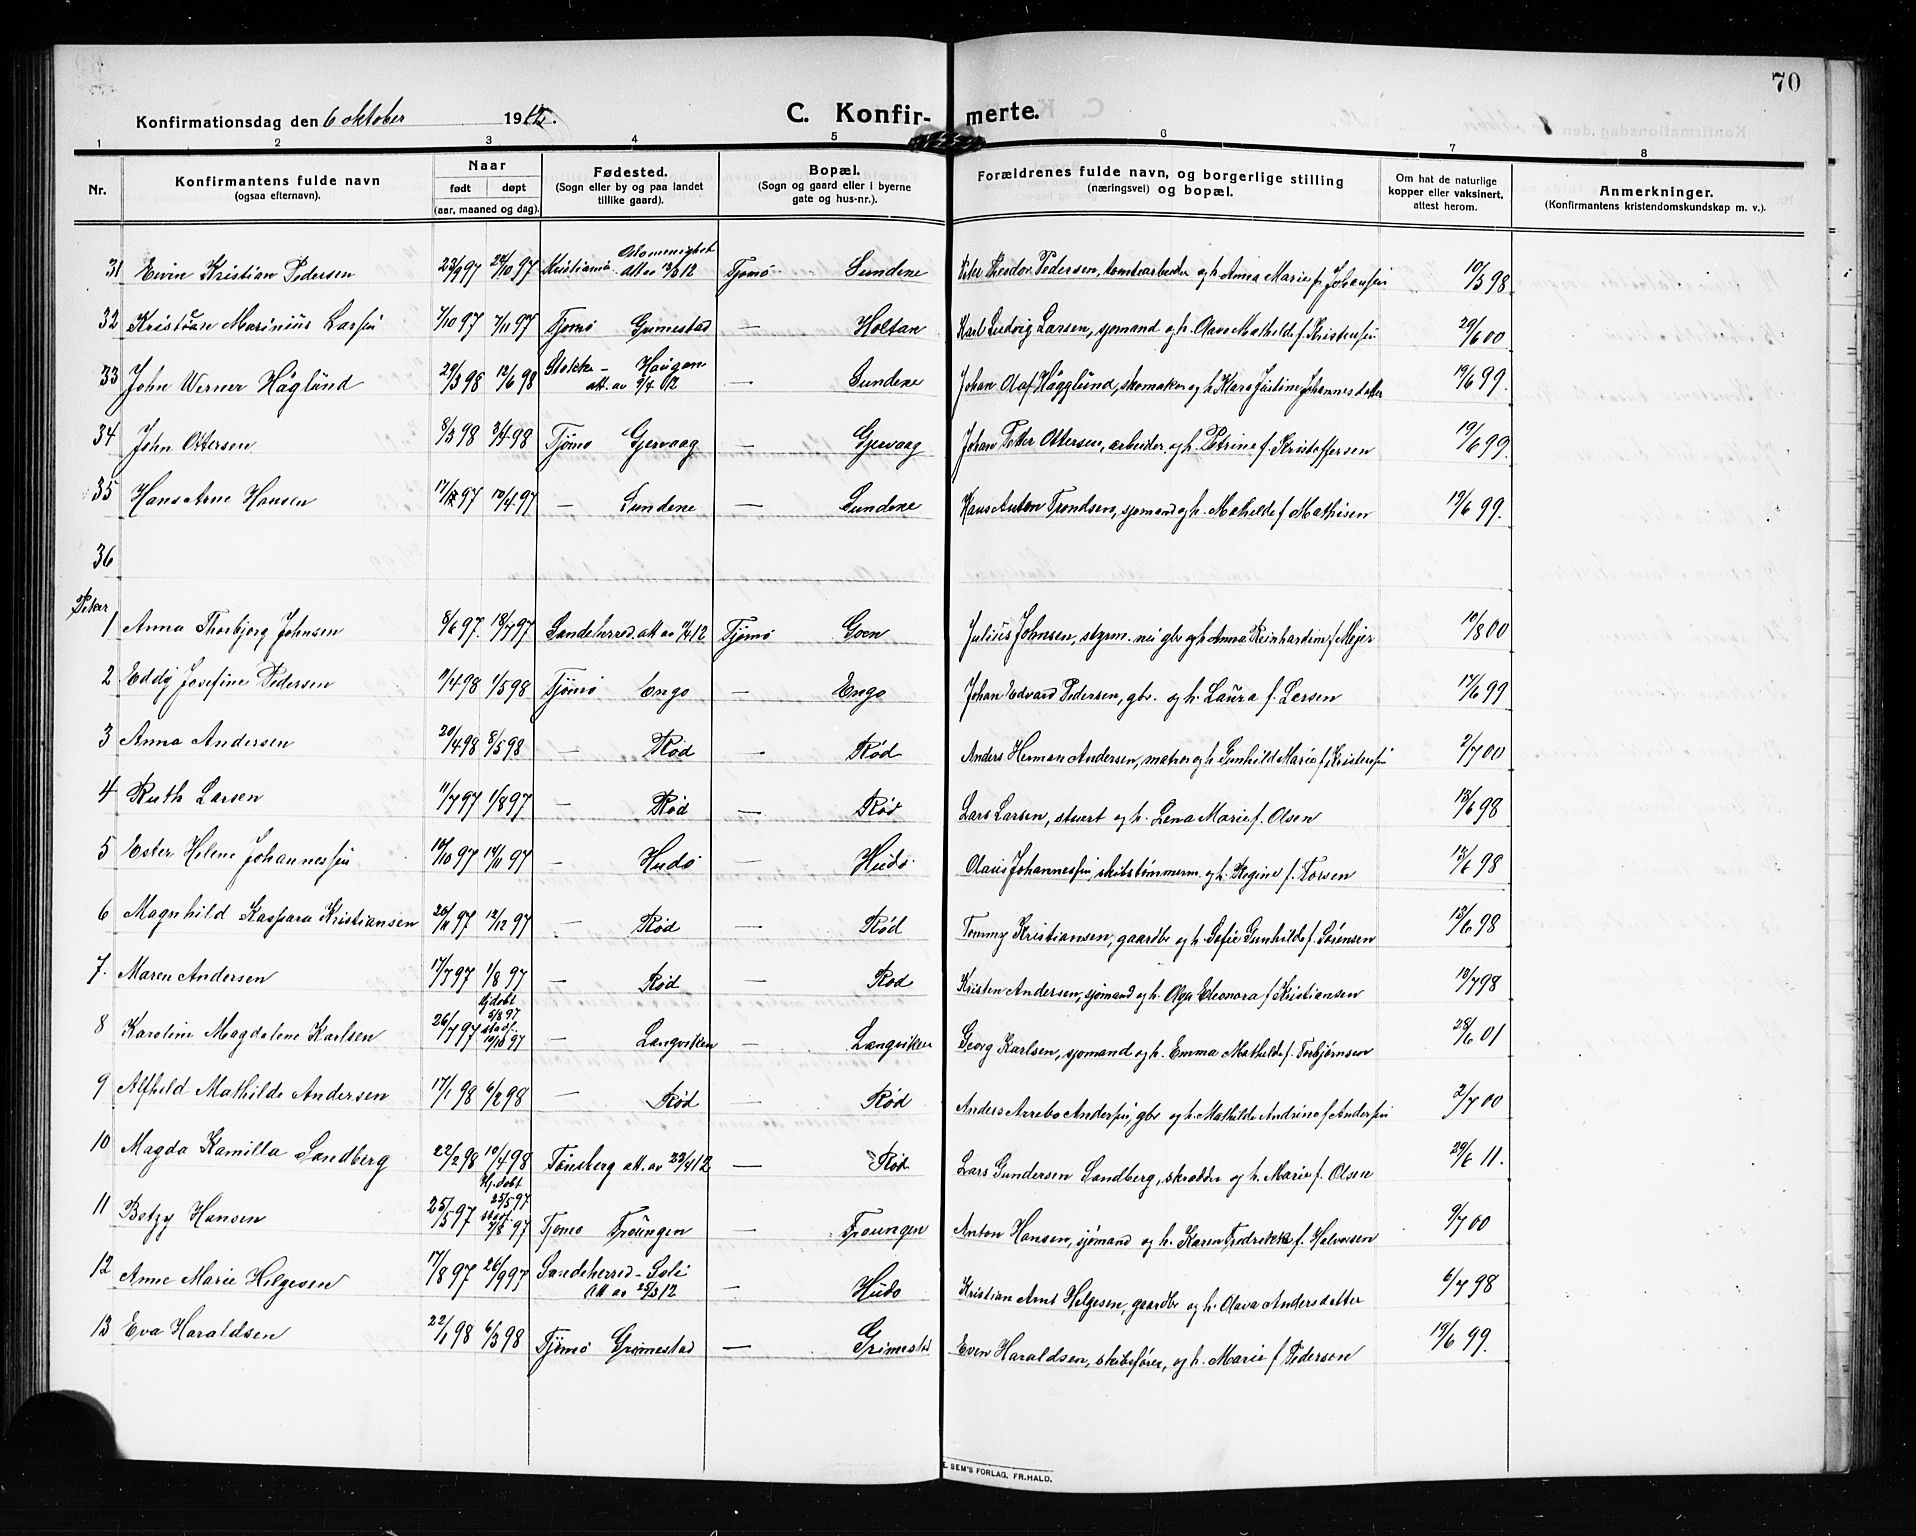 70
Konfirmationsdag den 6 oktober 1912.
C. Konfirmerte.
1 2 3 4 5 6 7 8
Nr.
Konfirmantens fulde navn
(ogsaa efternavn).
Naar
født døpt
(aar, maaned og dag).
Fødested.
(Sogn eller by og paa landet
tillike gaard).
Bopæl.
(Sogn og gaard eller i byerne
gate og hus-nr.).
Forældrenes fulde navn, og borgerlige stilling
(næringsvei) og bopæl.
Om hat de naturlige
kopper eller vaksinert,
attest herom.
Anmerkninger.
(Konfirmantens kristendomskundskap m. v.).
31 Eivin Kristian Pedersen 23/9 97 24/10 97 Kristiania att av 13/3 12 Tjømø Sundene Peter Theodor Pedersen, tomtearbeider og h. Anna Marie f. Johansen 10/3 98
32 Kristian Marinius Larsen 7/10 97 7/11 97 Tjømø Grimestad — Holtan Karl Ludvig Larsen, sjømand og h. Olava Mathilde f. Kristensen 29/6 00
33 John Werner Höglund 29/3 98 12/6 98 Stokke - Haugan att. av 9/4 12 — Sundene Johan Olaf Högglund, skomaker og h. Klara Justine Johannesdatter 19/6 99.
34 John Ottersen 8/3 98 3/4 98 Tjømø Gjervaag — Gjervaag Johan Petter Ottersen, arbeider og h. Petrine f. Kristoffersen 19/6 99
35 Hans Arne Hansen 17/12 97 10/4 97 — Sundene — Sundene Hans Anton Trondsen, sjømand og h. Mathilde f. Mathisen 19/6 99.
36
Piker
1 Anna Thorbjørg Johnsen 8/6 97. 18/7 97 Sandeherred att av 11/4 12 Tjømø Goen Julius Johnsen, styrm. nu gbr og h. Anna Reinhardine f. Mejer 10/8 00
2 Eddy Josefine Pedersen 11/4 98 1/5 98 Tjømø Engø — Engø Johan Edvard Pedersen, gbr. og h. Laura f. Larsen 17/6 99
3 Anna Andersen 20/4 98 8/5 98 — Rød — Rød Anders Herman Andersen, matros og h. Gunhild Marie f. Kristensen 2/7 00
4 Ruth Larsen 11/7 97 1/8 97 — Rød — Rød Lars Larsen, stuert og h. Lena Marie f. Olsen 13/6 98
5 Ester Helene Johannessen 10/10 97 14/11 97 — Hudø — Hudø Olaus Johannessen, skibstømmerm. og h. Regine f. Torsen 13/6 98
6 Magnhild Kaspara Kristiansen 26/11 97 12/12 97 — Rød — Rød Tommy Kristiansen, gaardbr og h. Sofie Gunhilde f. Sørensen 13/6 98
7. Maren Andersen 17/7 97 1/8 97 — Rød — Rød Kristen Andersen, sjømand og h. Olga Eleonora f. Kristiansen 10/7 98
8 Karoline Magdalene Karlsen 26/7 97 Hj.døbt 5/8 97 stadf. 10/10 97 — Langviken — Langviken Georg Karlsen, sjømand og h. Emma Mathilde f. Torbjørnsen 28/6 01
9 Alfhild Mathilde Andersen 17/1 98 6/2 98 — Rød — Rød Anders Arrebo Andersen, gbr og h. Mathilde Andrine f. Andersen 2/7 00
10 Magda Kamilla Sandberg 22/2 98 10/4 98 Tønsberg att. av 23/4 12 — Rød Lars Gundersen Sandberg, skrædder og h. Marie f. Olsen 29/6 11.
11 Betzy Hansen 25/5 97 Hj.døbt 25/5 97 stadf. 7/8 97 Tjømø Traungen — Traungen Anton Hansen, sjømand og h. Karen Fredrikke f. Halvorsen 9/7 00
12 Anne Marie Helgesen 17/8 97 26/9 97 Sandeherred - Soli Att av 25/3 12 — Hudø Kristian Arnt Helgesen, gaardbr og h. Olava Andersdatter 6/7 98
13 Eva Haraldsen 22/1 98 6/3 98 Tjømø Grimestad — Grimestad Even Haraldsen, skibsfører, og h. Marie f. Pedersen 19/6 99.
E. SEM'S FORLAG, FR.HALD.